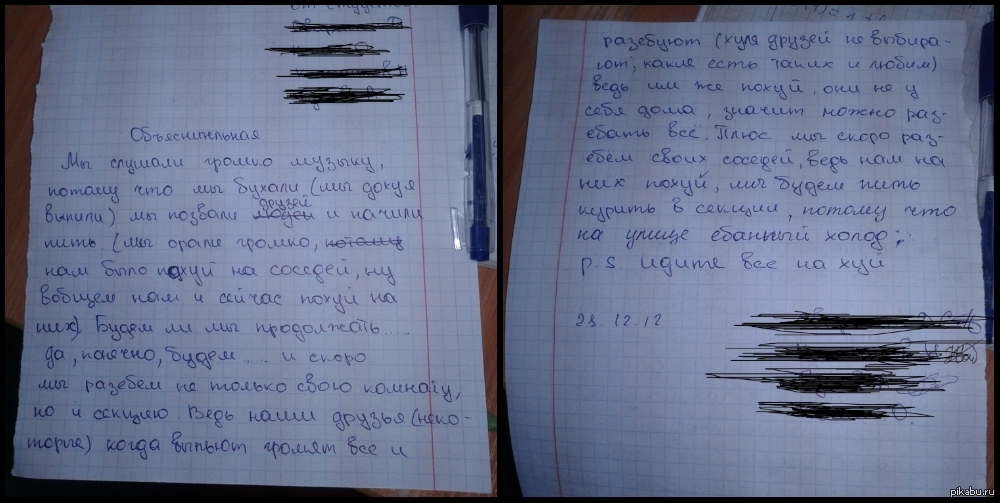 от студентов
Объяснительная
Мы слушали громко музыку,
потому что мы бухали (мы дохуя
выпили) мы позвали людей друзей и начили
пить. (мы орали громко, потому
нам было похуй на соседей, ну
вобщем нам и сейчас похуй на
них). Будем ли мы продолжать....
да, конечно, будем.... и скоро
мы разебем не только свою комнату,
но и секцию. Ведь наши друзья (неко-
торые) когда выпьют громят все и
разебуют (хуля друзей не выбира-
ют, какие есть таких и любим)
ведь им же похуй, они не у
себя дома, значит можно раз-
ебать все. Плюс мы скоро раз-
ебём своих соседей, ведь нам на
них похуй, мы будем пить
курить в секции, потому что
на улице ебанный холод;
p.s. идите все на хуй
23.12.12
pikabu.ru